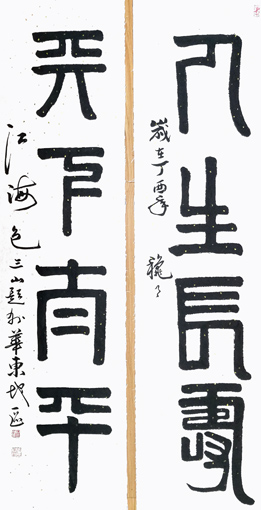 人生長壽
歲在丁酉年
天下太平
江海色三山題於華東地區